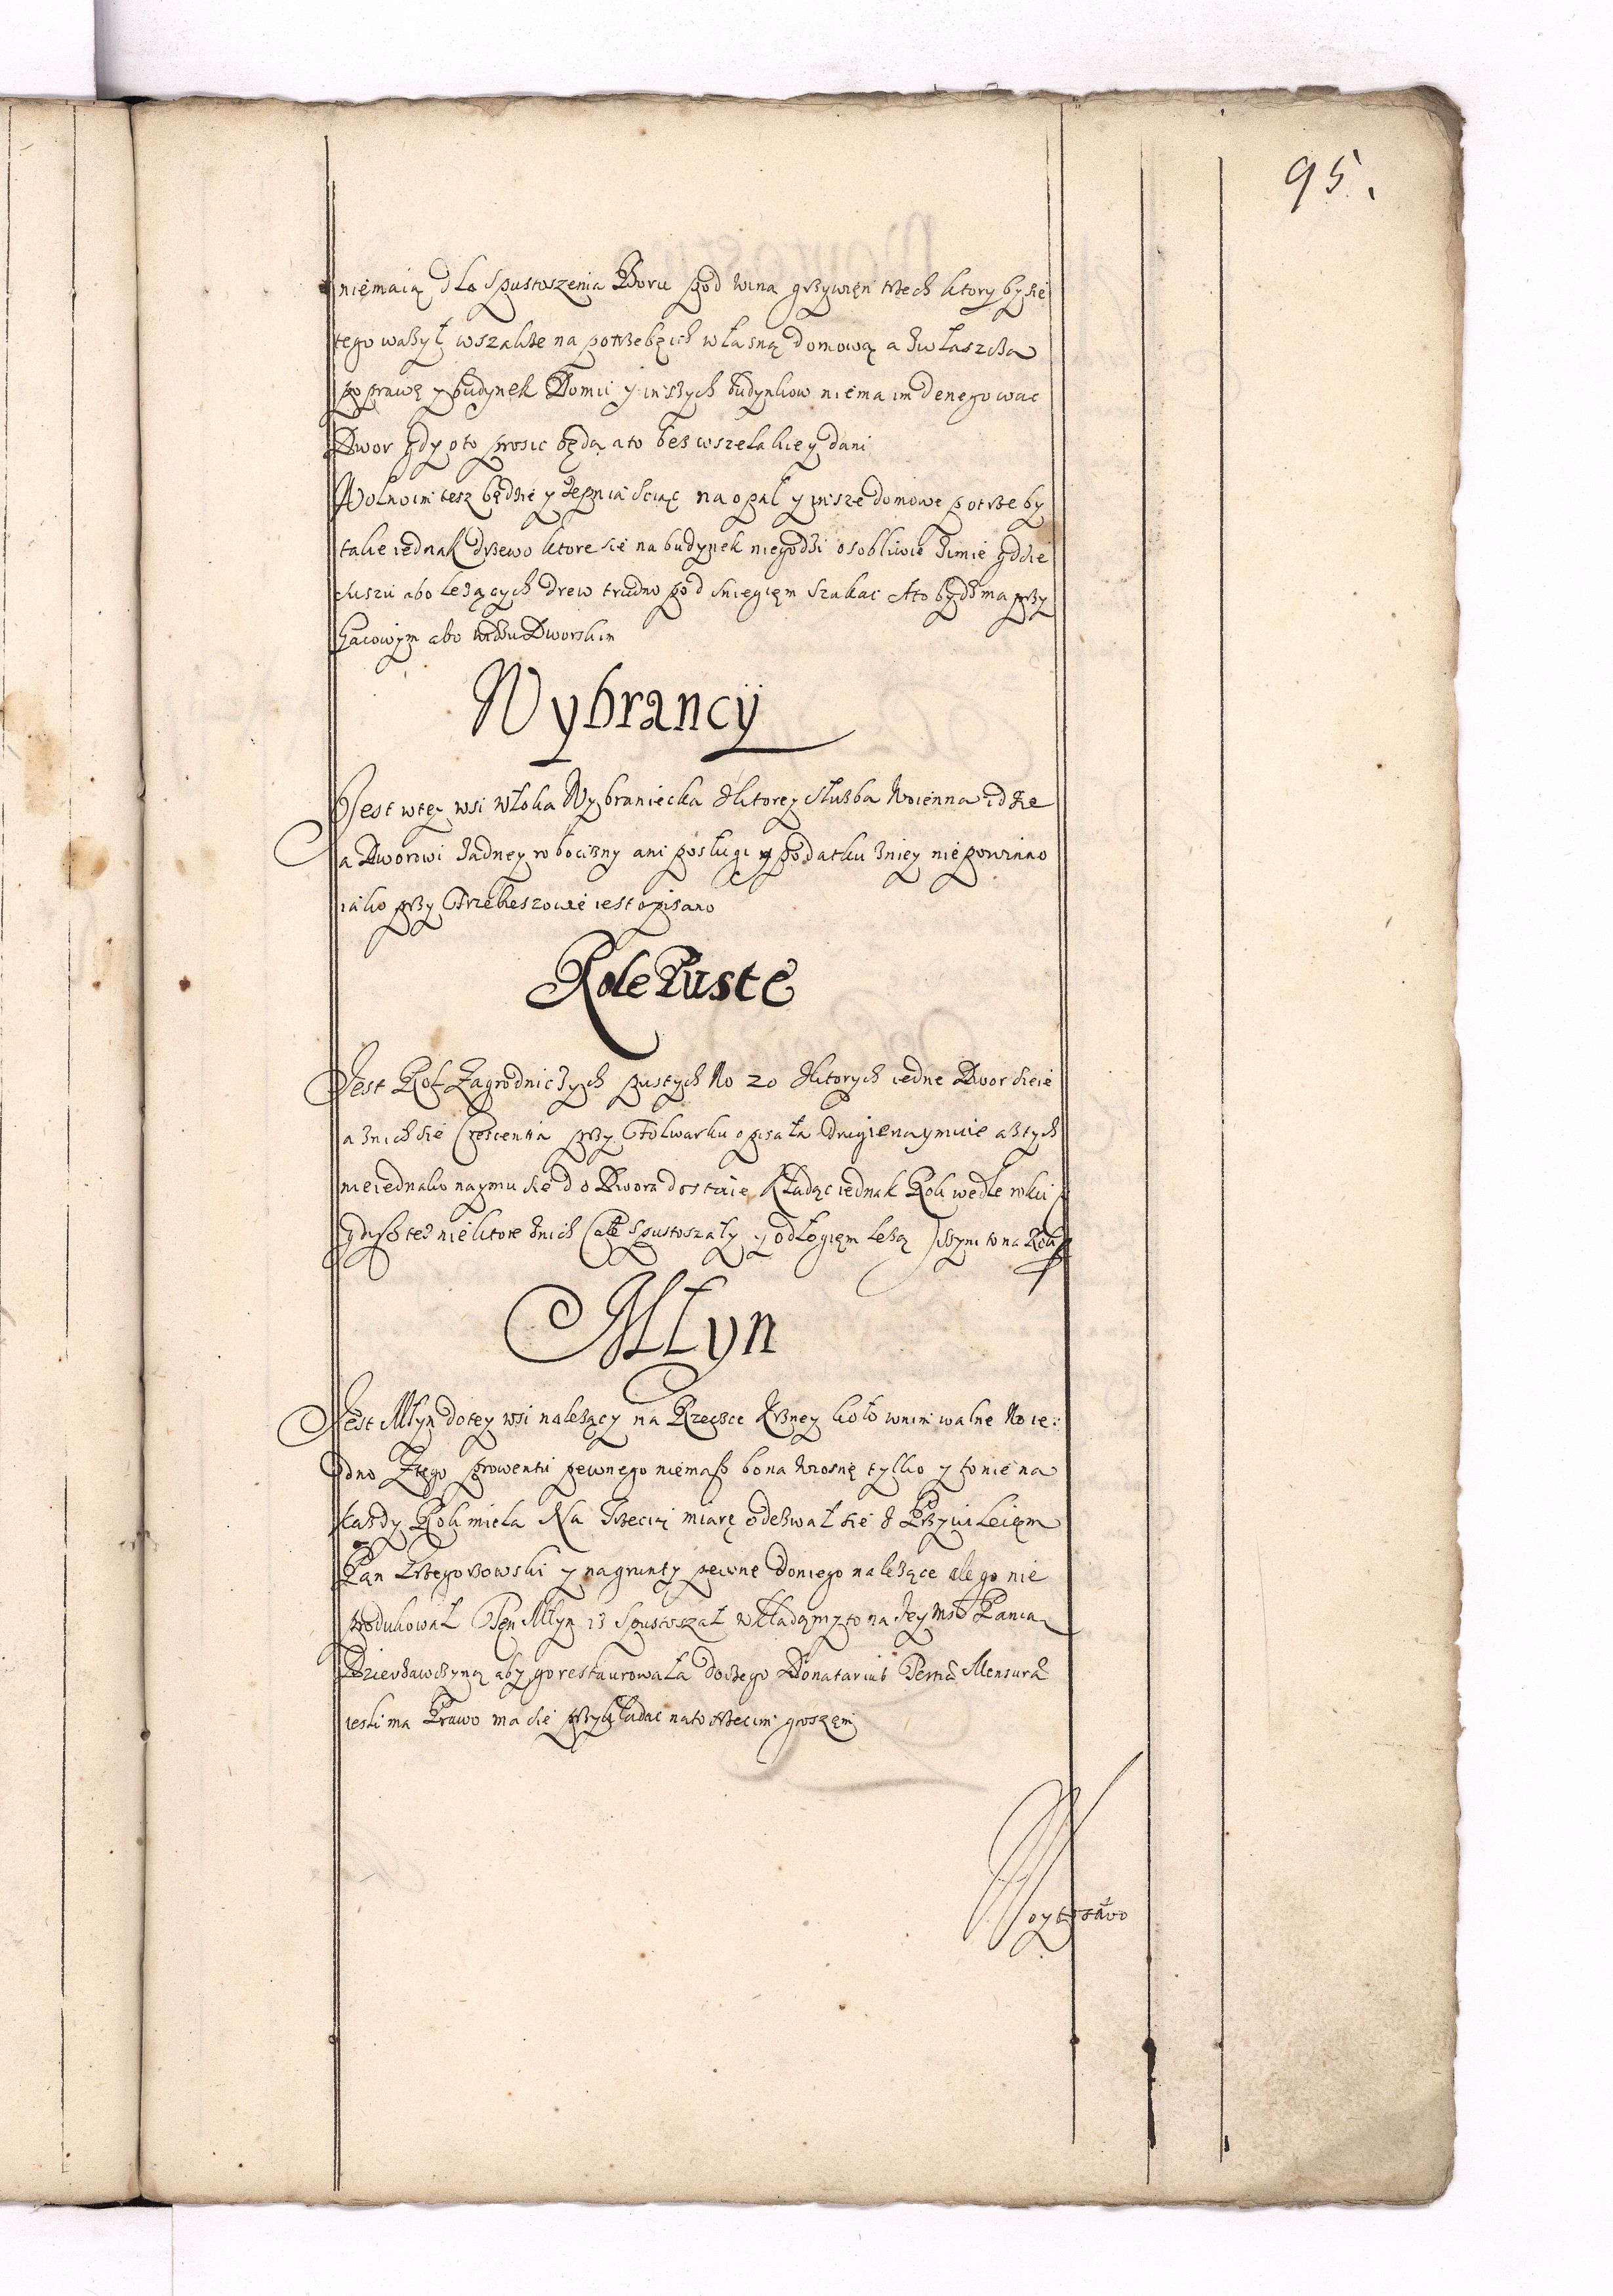 95.
niemaią dla Spustoszenia Boru pod winą grzywien trzech ktory by się
tego ważył wszakże na potrzebę ich własną domową a zwłaszcza
poprawę y budynek Domu y inszych budynkow niema im denegowac
Dwor gdy oto prosic będą a to bez wszelakiey dani
Wolno im tesz będzie y Pnia sciąc na opał y insze domowe potrzeby
takie iednak drzewo ktore się na budynek niegodzi osobliwie zimie gdzie
suszu abo leżących drew trudno pod sniegiem szukac Ato bydz ma przy
Gaiowym abo Dworskim
Wybrancy
Jest wtey wsi włoka Wybraniecka zktorey służba Woienna idzie
a Dworowi żadney robocizny ani posługi y podatku zniey niepowinno
iako przy Trzebieszowie iest opisano
Role Puste
Jest Rol Zagrodniczych pustych No 20 zktorych iedne Dwor sieie
a znich się Crescentia przy Folwarku opisała drugie naymuie a ztych
nieiednako naymu się do Dwora dostaie Kładąc iednak Rok wedle roku
gdysz też niektore znich cale spustoszały y odłogiem leżą na Rok
Młyn
Jest Młyn dotey wsi należący na Rzeczce Krzney koło wnim walne No ie:
dno Ztego prowentu pewnego niemasz bo na wiosnę tylko y to nie na
każdy Rok miela Na Trzecią miarę odezwał się z Przywileiem
Pan Krzegorzowski y na grunty pewne doniego należące ale go nie
produkował Ten Młyn iż Spustoszał wkładamy to na Jey Mść Panią
Dzierżawczynę aby go restaurowała doczego Donatarius Tertiæ Mensuræ
ieśli ma Prawo ma się przykładac nato trzecim groszem
Woytostwo